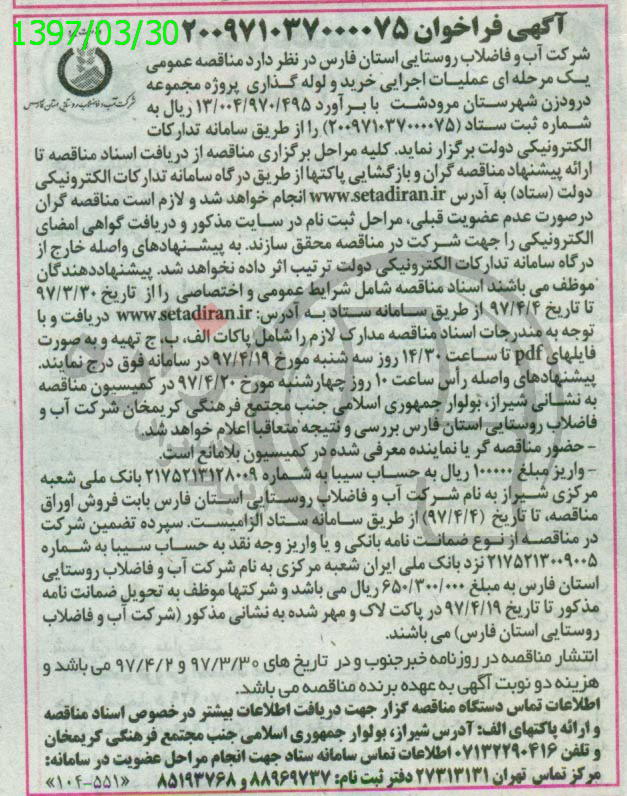 1397/03/30
آگهی فراخوان ۲۰۰۹۷۱۰۳۷۰۰۰۰۷۵
شرکت آب و فاضلاب روستایی استان فارس در نظر دارد مناقصه عمومی
یک مرحله ای عملیات اجرایی خرید و لوله گذاری پروژه مجموعه
درودزن شهرستان مرودشت با برآورد ۱۳/۰۰۴/۹۷۰/۴۹۵ ریال به
شماره ثبت ستاد (۲۰۰۹۷۱۰۳۷۰۰۰۰۷۵) را از طریق سامانه تدارکات
شرکت آب و فاضلاب روستایی استان فارس
الکترونیکی دولت برگزار نماید. کلیه مراحل برگزاری مناقصه از دریافت اسناد مناقصه تا
ارائه پیشنهاد مناقصه گران و بازگشایی پاکتها از طریق درگاه سامانه تدارکات الکترونیکی
دولت (ستاد) به آدرس www.setadiran.ir انجام خواهد شد و لازم است مناقصه گران
درصورت عدم عضویت قبلی، مراحل ثبت نام در سایت مذکور و دریافت گواهی امضای
الکترونیکی را جهت شرکت در مناقصه محقق سازند. به پیشنهادهای واصله خارج از
درگاه سامانه تدارکات الکترونیکی دولت ترتیب اثر داده نخواهد شد. پیشنهاددهندگان
موظف می باشند اسناد مناقصه شامل شرایط عمومی و اختصاصی را از تاریخ ۹۷/۳/۳۰
تا تاریخ ۹۷/۴/۴ از طریق سامانه ستاد به آدرس: www.setadiran.ir دریافت و با
توجه به مندرجات اسناد مناقصه مدارک لازم را شامل پاکات الف، ب، ج تهیه و به صورت
فایلهای pdf تا ساعت ۱۴/۳۰ روز سه شنبه مورخ ۹۷/۴/۱۹ در سامانه فوق درج نمایند.
پیشنهادهای واصله رأس ساعت ۱۰ روز چهارشنبه مورخ ۹۷/۴/۲۰ در کمیسیون مناقصه
به نشانی شیراز، بولوار جمهوری اسلامی جنب مجتمع فرهنگی کریمخان شرکت آب و
فاضلاب روستایی استان فارس بررسی و نتیجه متعاقبا اعلام خواهد شد.
- حضور مناقصه گر یا نماینده معرفی شده در کمیسیون بلامانع است.
- واریز مبلغ ۱۰۰۰۰۰ ریال به حساب سیبا به شماره ۲۱۷۵۲۱۳۱۲۸۰۰۹ بانک ملی شعبه
مرکزی شیراز به نام شرکت آب و فاضلاب روستایی استان فارس بابت فروش اوراق
مناقصه، تا تاریخ (۹۷/۴/۴) از طریق سامانه ستاد الزامیست. سپرده تضمین شرکت
در مناقصه از نوع ضمانت نامه بانکی و یا واریز وجه نقد به حساب سیبا به شماره
۲۱۷۵۲۱۳۰۰۹۰۰۵ نزد بانک ملی ایران شعبه مرکزی به نام شرکت آب و فاضلاب روستایی
استان فارس به مبلغ ۶۵۰/۳۰۰/۰۰۰ ریال می باشد و شرکتها موظف به تحویل ضمانت نامه
مذکور تا تاریخ ۹۷/۴/۱۹ در پاکت لاک و مهر شده به نشانی مذکور (شرکت آب و فاضلاب
روستایی استان فارس) می باشند.
انتشار مناقصه در روزنامه خبرجنوب و در تاریخ های ۹۷/۳/۳۰ و ۹۷/۴/۲ می باشد و
هزینه دو نوبت آگهی به عهده برنده مناقصه می باشد.
اطلاعات تماس دستگاه مناقصه گزار جهت دریافت اطلاعات بیشتر در خصوص اسناد مناقصه
و ارائه پاکتهای الف: آدرس شیراز، بولوار جمهوری اسلامی جنب مجتمع فرهنگی کریمخان
و تلفن ۰۷۱۳۲۲۹۰۴۱۶ اطلاعات تماس سامانه ستاد جهت انجام مراحل عضویت در سامانه:
مرکز تماس تهران ۲۷۳۱۳۱۳۱ دفتر ثبت نام: ۸۸۹۶۹۷۳۷ و ۸۵۱۹۳۷۶۸ «۱۰۴-۵۵۱»